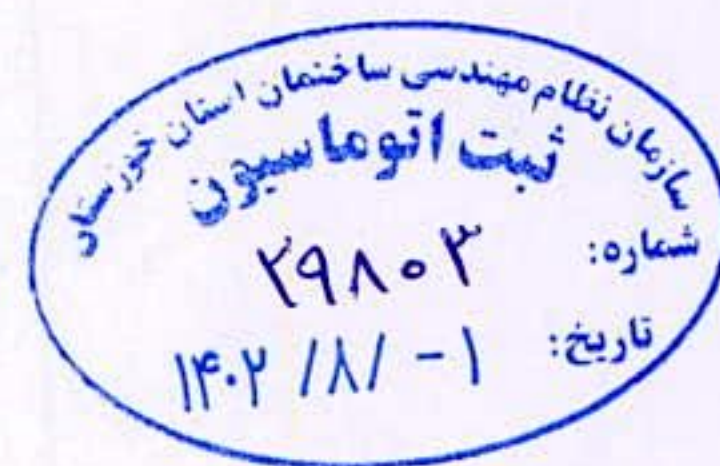 سازمان نظام مهندسی ساختمان استان خوزستان
ثبت اتوماسیون
شماره: ۲۹۸۰۳
تاریخ: ۱۴۰۲ /۸/ -۱